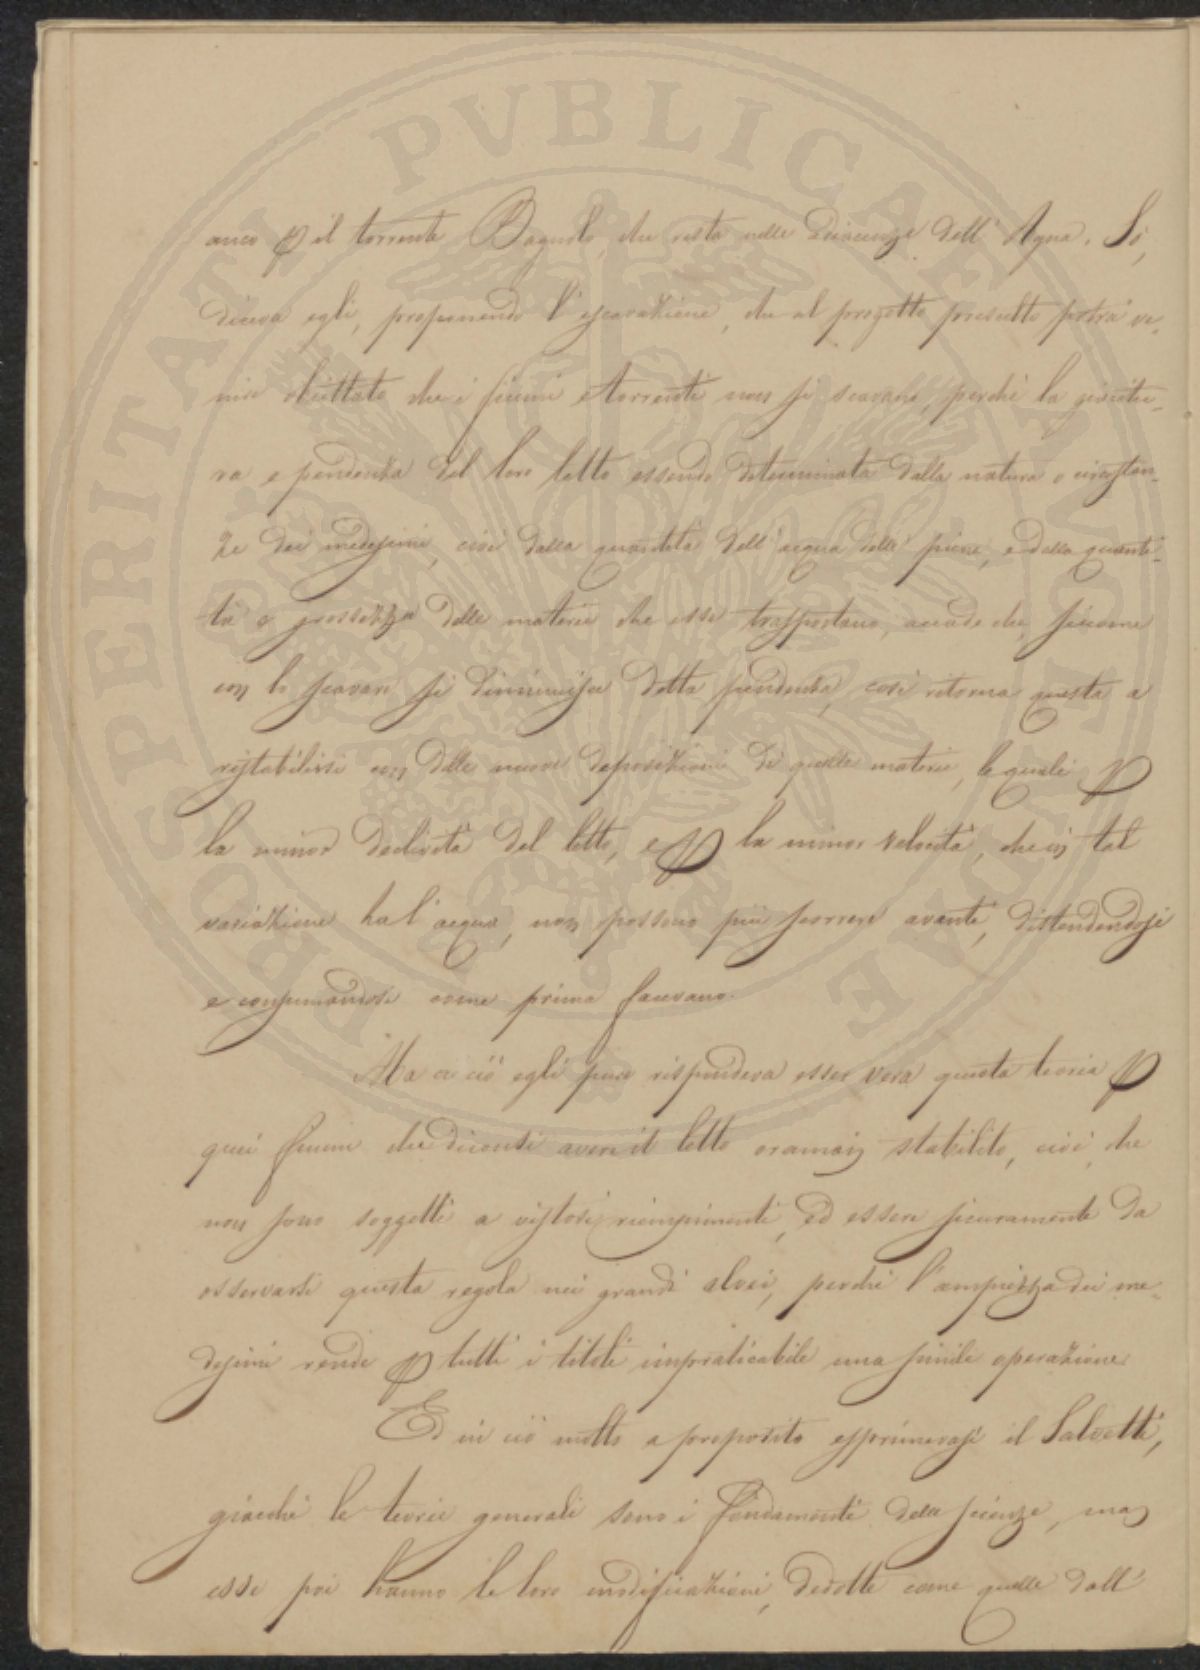 PROSPERITATI PVBLICAE
anco p il torrente Bagnolo, che resta nelle adiacenze dell' Agna. Sò,
diceva egli, proponendo l' escavazione, che al progetto prescelto potrà ve-
nire obiettato che i fiumi e torrenti non si scavano, perchè la giacitu-
ra e pendenza del loro letto essendo determinata dalla natura e circostan-
ze dei medesimi, cioè dalla quantità dell' acqua delle piene, e dalla quanti-
tà e grossezza delle materie che esse trasportano, accade che, siccome
con lo scavare si diminuisce detta pendenza, così ritorna questa a
ristabilirsi con delle nuove deposizioni di quelle materie, le quali p
la minor declività del letto, e p la minor velocità, che in tal
variazione ha l' acqua, non possono più scorrere avanti, distendendosi
e consumandosi come prima facevano.
Ma a ciò egli pure rispondeva esser vera questa teoria p
quei fiumi che diconsi avere il letto oramai stabilito, cioè che
non sono soggetti a vistosi riempimenti, ed essere sicuramente da
osservarsi questa regola nei grandi alvei, perchè l' ampiezza dei me-
desimi rende p tutti i titoli impraticabile una simile operazione.
Ed in ciò molto a proposito esprimevasi il Salvetti,
giacchè le teorie generali sono i fondamenti della scienze, ma
esse poi hanno le loro modificazioni, dedotte come quelle dall'